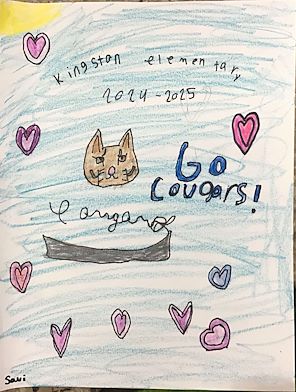 Kingston elementary
2024-2025
Go
Cougars!
Cougars
Savi